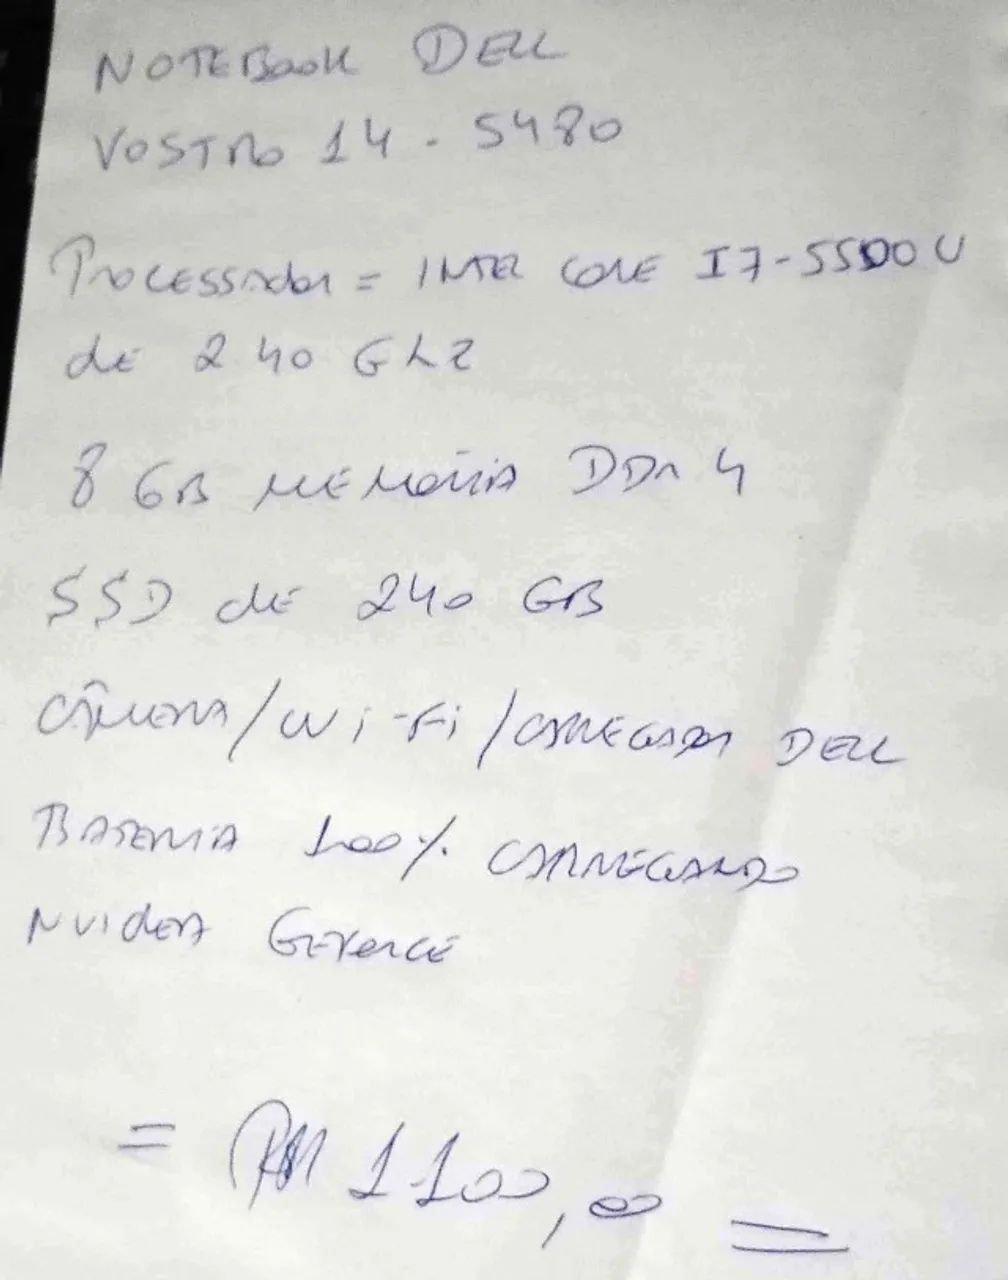 NOTEBOOK DELL
VOSTRO 14 - 5480
PROCESSADOR = INTEL CORE I7-5500U
de 2.40 GhZ
8 GB MEMÓRIA DDR 4
SSD de 240 GB
CÂMERA/Wi-Fi/CARREGADOR DELL
BATERIA 100% CARREGANDO
NVIDEA GEFORCE
= 1.100,00 =